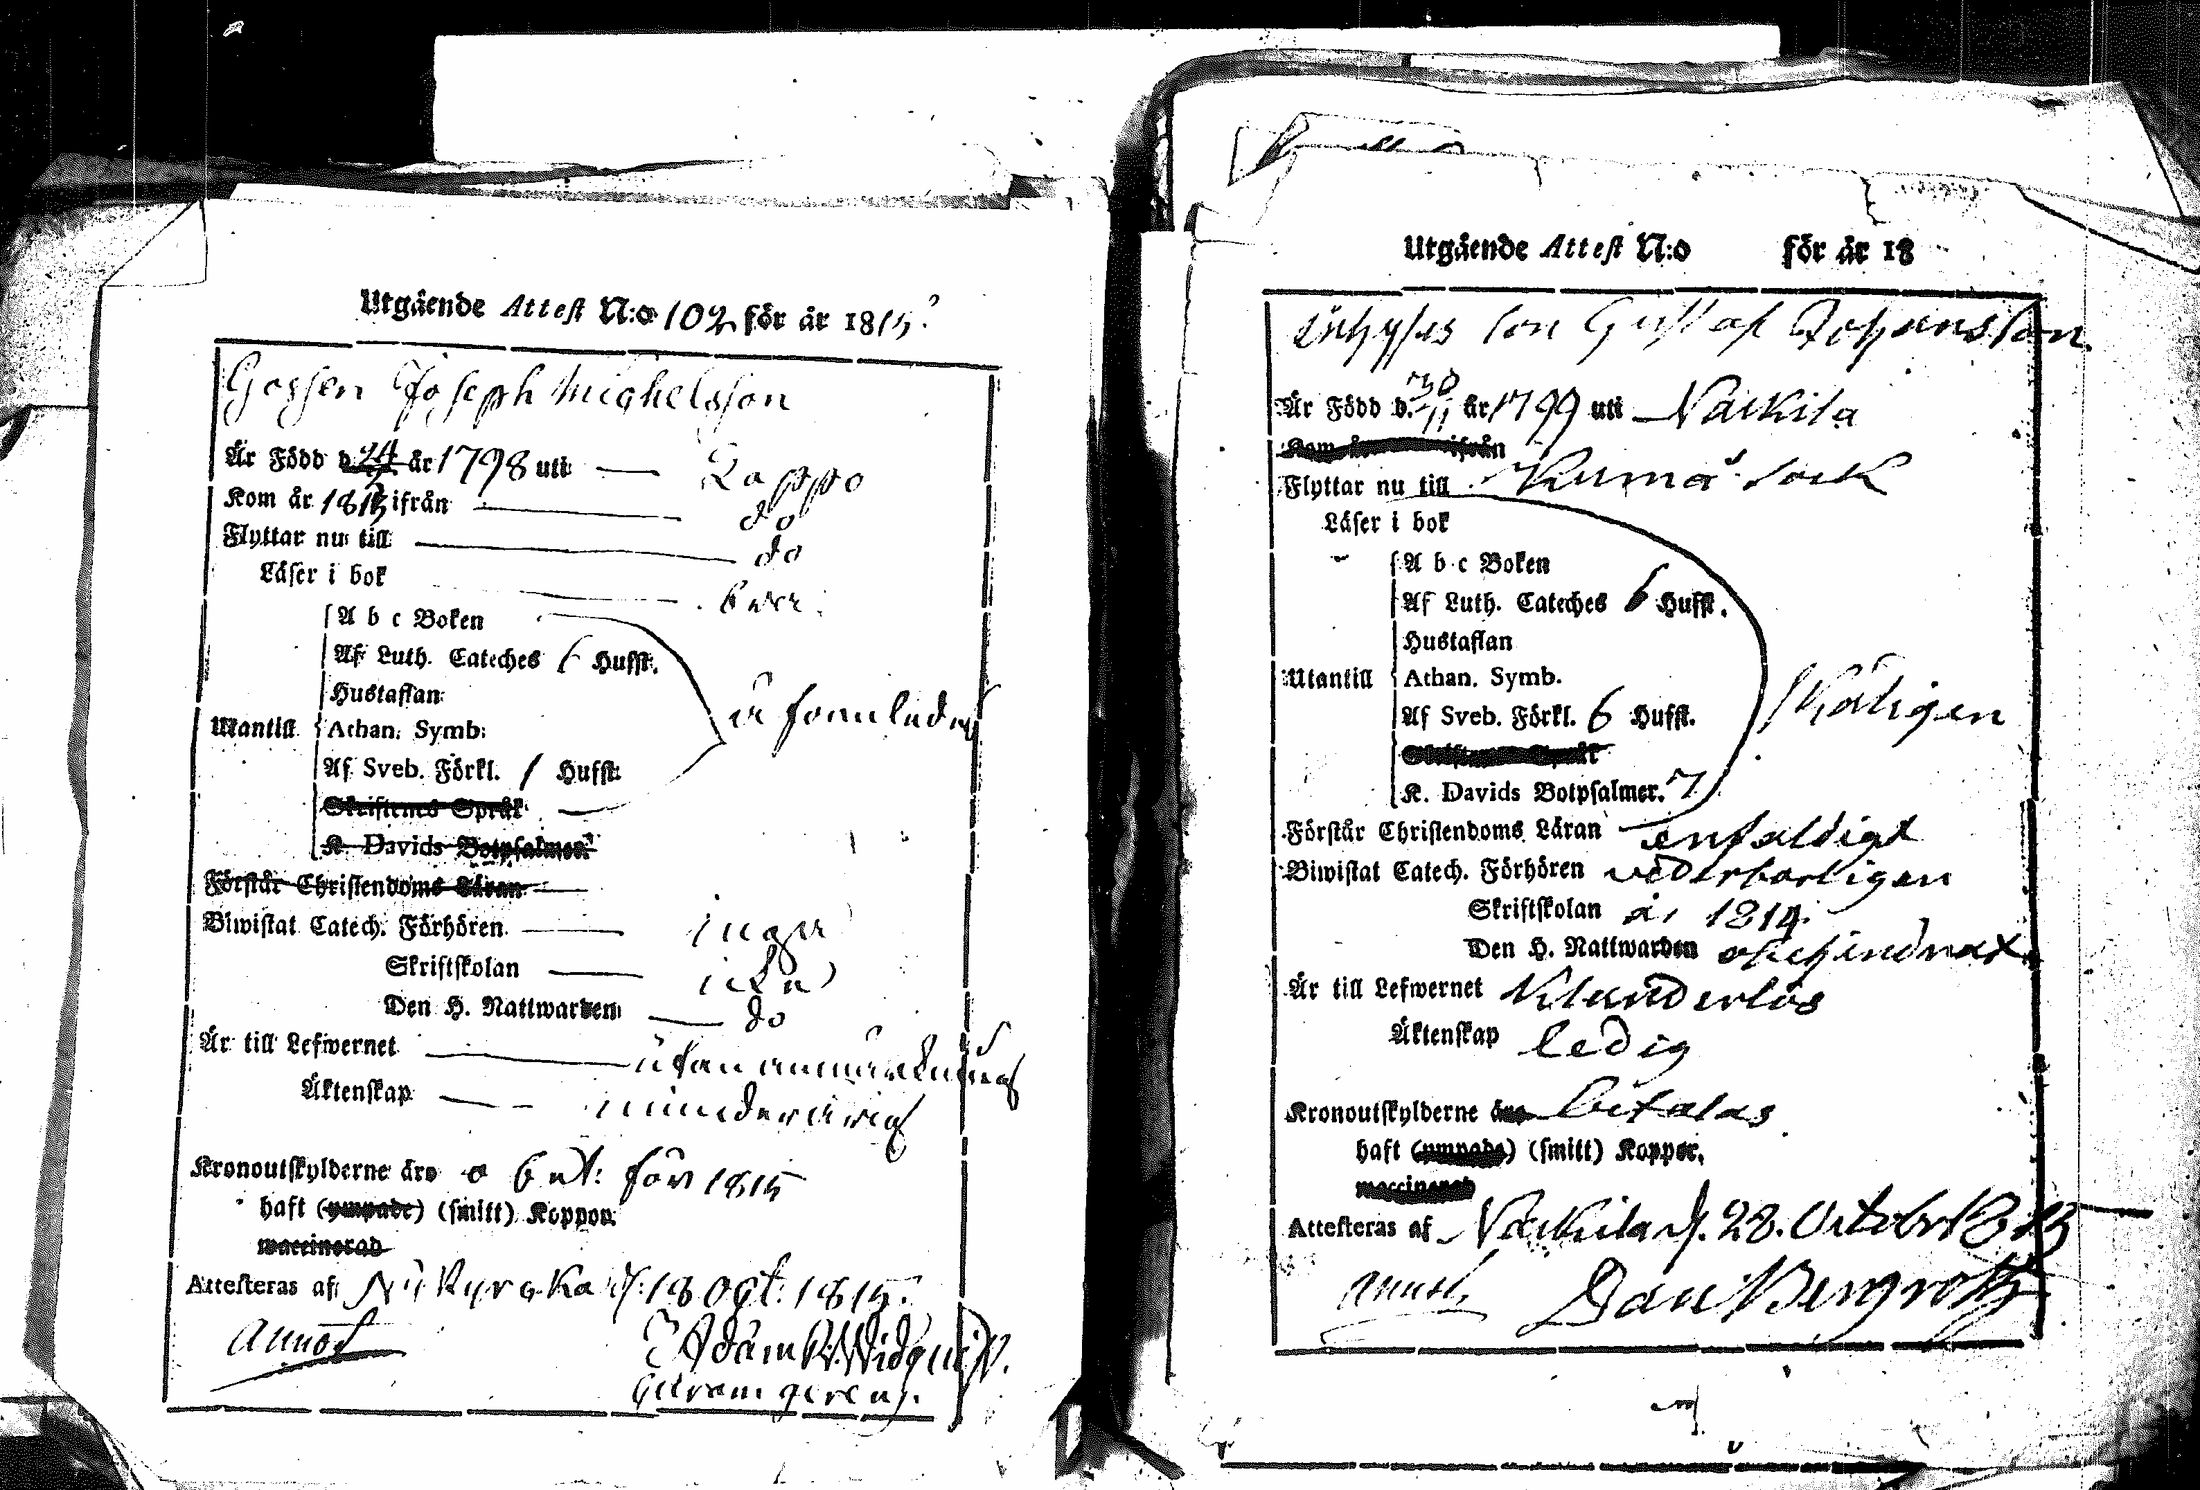 Utgående Attest N:o 102 för år 1815
Gossen Joseph Michelsson
Är Född d. 24 år 1798 uti Lappo
Kom år 1813 ifrån do
Flyttar nu till do
Läser i bok
A b c Boken
Af Luth. Cateches 6 Hufst.
Hustaflan
Utantill Athan. Symb.
Af Sveb. Förkl. 1 Hufst.
Skriftenes Språk
K. Davids Botpsalmer.
Förstår Christendoms Läran
Biwistat Catech. Förhören inga
Skriftskolan icke
Den H. Nattwarden do
Är till Lefwernet utan anmärkning
Äktenskap minderårig
Kronoutskylderne äro bet: för 1815
haft (ympade) (smitt) Koppor.
waccinerad
Attesteras af Nykyrcka d. 18 Oct: 1815.
Adam Widqvist
Utgående Attest N:o för år 18
Inhyses son Gustaf Johansson
Är Född d. 30/11 år 1799 uti Näkkilä
Kom år ifrån
Flyttar nu till Kumo sock
Läser i bok
A b c Boken
Af Luth. Cateches 6 Hufst.
Hustaflan
Utantill Athan. Symb. skäligen
Af Sveb. Förkl. 6 Hufst.
Skriftenes Språk
K. Davids Botpsalmer. 7
Förstår Christendoms Läran enfaldigt
Biwistat Catech. Förhören vederbörligen
Skriftskolan år 1814.
Den H. Nattwarden ohehindrat
Är till Lefwernet klanderlös
Äktenskap ledig
Kronoutskylderne äro betalas
haft (ympade) (smitt) Koppor.
waccinerad
Attesteras af Näkkilä d. 28. October 1815
Dan Bergroth